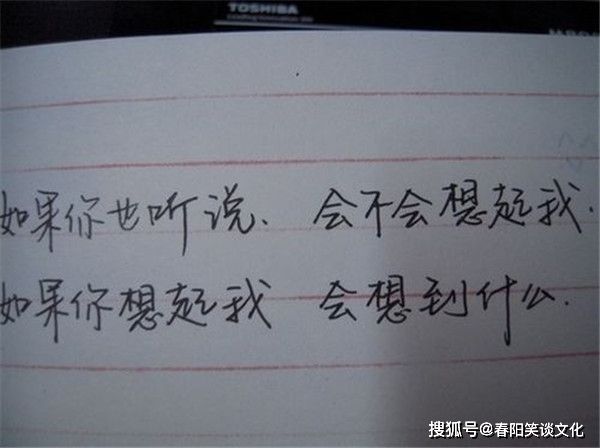 TOSHIBA
Leading Innovation >>>
如果你也听说、会不会想起我.
如果你想起我 会想到什么.
搜狐号@春阳笑谈文化